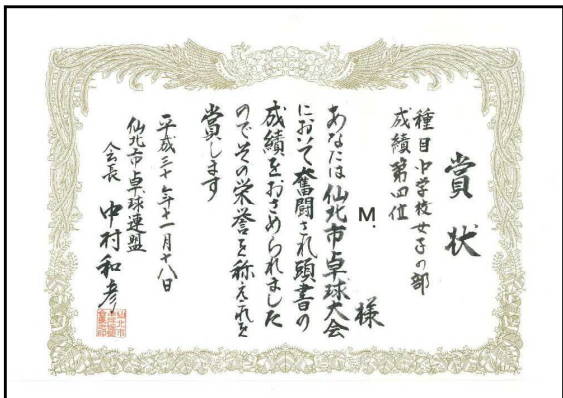 賞状
種目 中学校女子の部
成績 第四位
M. 様
あなたは仙北市卓球大会
において奮闘され頭書の
成績をおさめられました
のでその栄誉を称えこれを
賞します
平成三十年十一月十八日
仙北市卓球連盟
会長 中村和彦